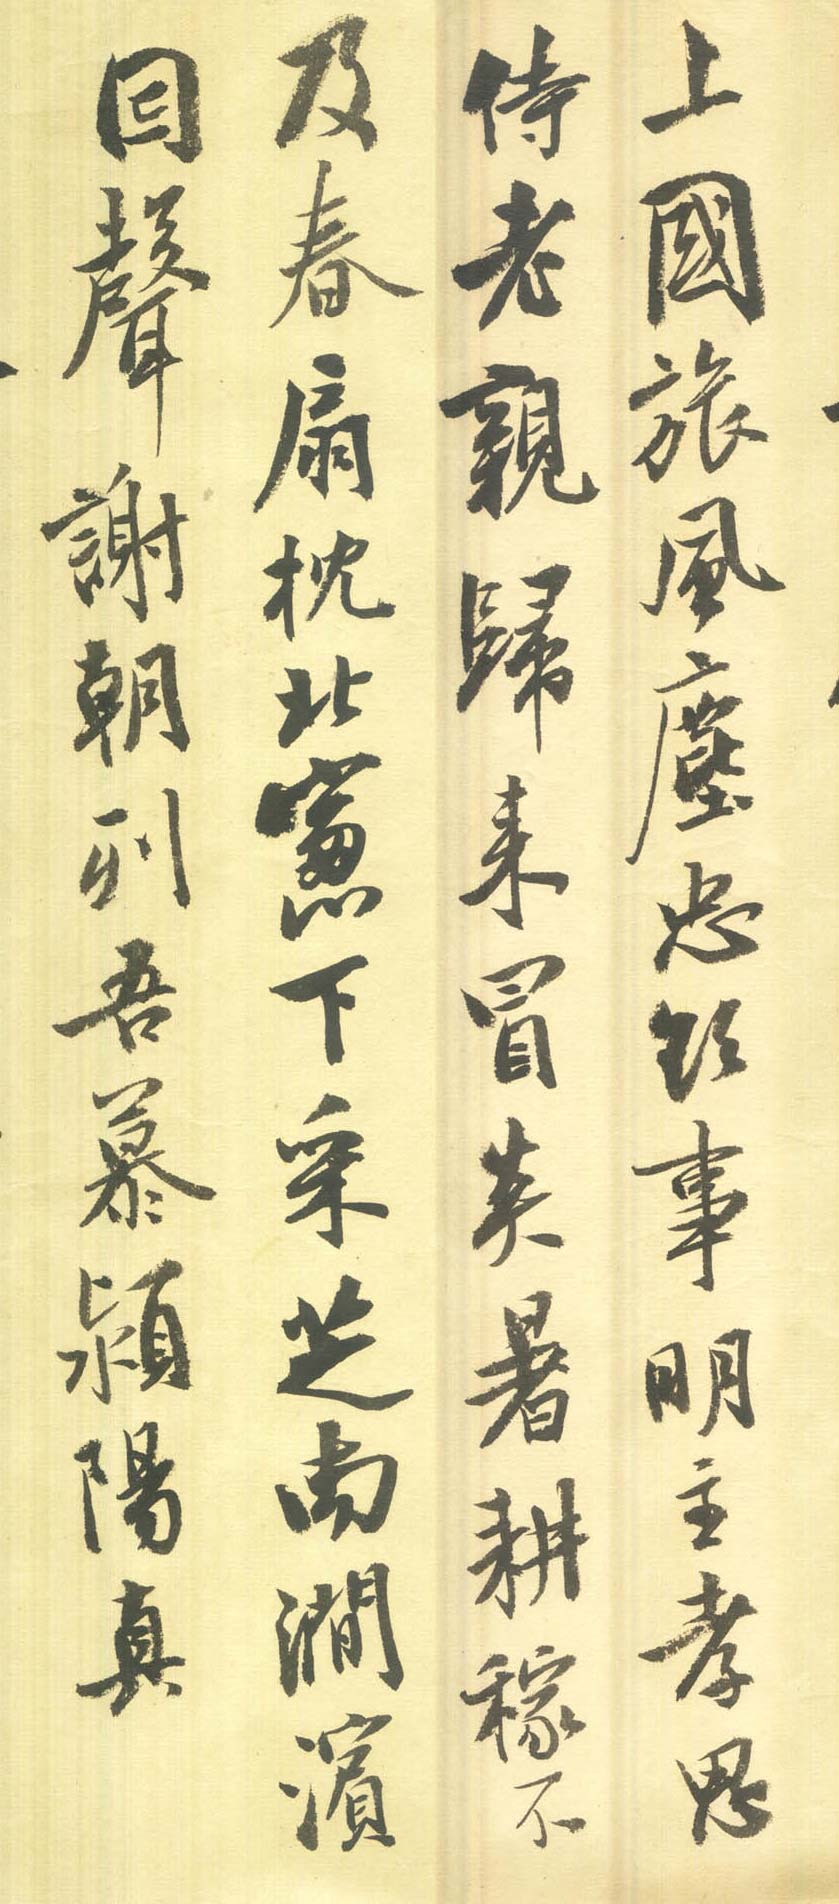 上國旅風塵忠欲事明主孝思
侍老親歸来冒炎暑耕稼不
及春扇枕北窻下采芝南澗濱
囙聲謝朝列吾慕潁陽真